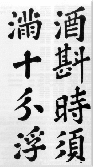 酒斟時須
滿十分浮